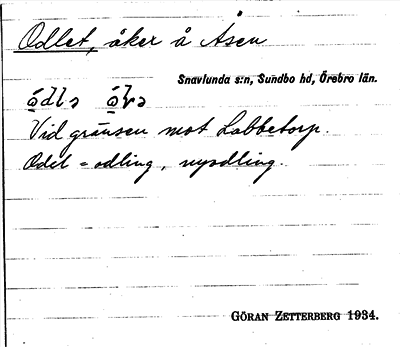 Odlet, åker å Åsen
Snavlunda s:n, Sundbo hd, Örebro län.
Vid gränsen mot Labbetorp.
Odel = odling, nyodling.
GÖRAN ZETTERBERG 1934.